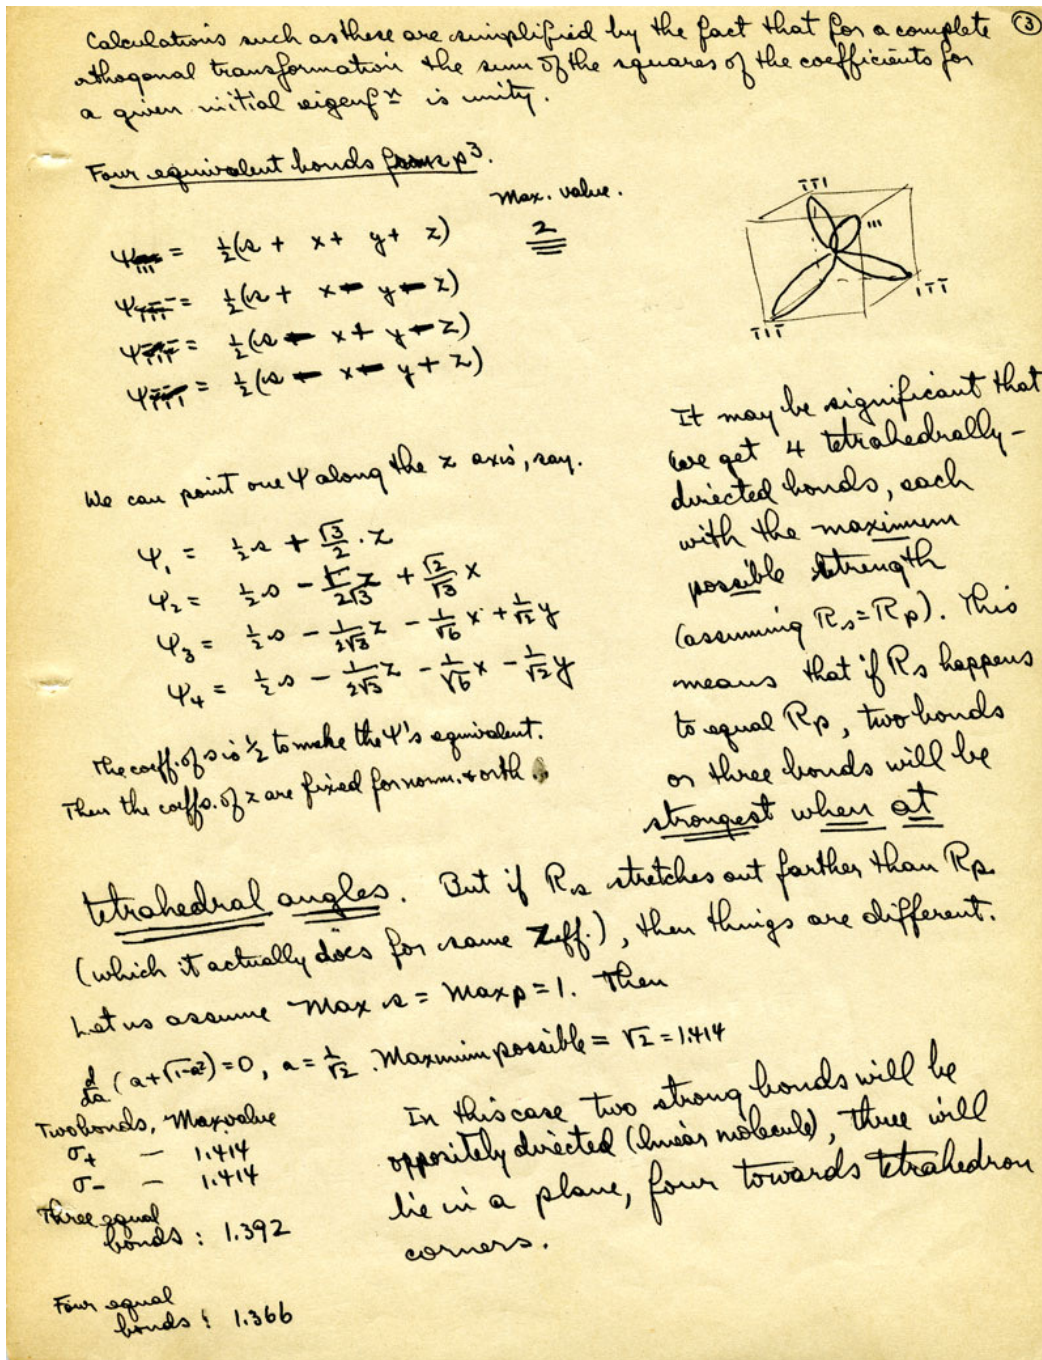 ③
Calculations such as these are simplified by the fact that for a complete
othogonal transformation the sum of the squares of the coefficients for
a given initial eigenfⁿ is unity.
Four equivalent bonds from sp³.
Max. value.
2
ψ₁₁₁ = ½(s + x + y + z)
ψ₁₁̄₁̄ = ½(s + x - y - z)
ψ₁̄₁₁̄ = ½(s - x + y - z)
ψ₁̄₁̄₁ = ½(s - x - y + z)
1̄1̄1
111
11̄1̄
1̄11̄
We can point one ψ along the z axis, say.
ψ₁ = ½s + √3/2 · z
ψ₂ = ½s - 1/2√3 z + √2/√3 x
ψ₃ = ½s - 1/2√3 z - 1/√6 x + 1/√2 y
ψ₄ = ½s - 1/2√3 z - 1/√6 x - 1/√2 y
The coeff. of s is ½ to make the ψ's equivalent.
Then the coeffs. of z are fixed for norm. + orth.
It may be significant that
we get 4 tetrahedrally-
directed bonds, each
with the maximum
possible strength
(assuming Rs = Rp). This
means that if Rs happens
to equal Rp, two bonds
or three bonds will be
strongest when at
tetrahedral angles. But if Rs stretches out farther than Rp
(which it actually does for same Zeff.), then things are different.
Let us assume Max s = Max p = 1. Then
d/da (a + √1-a²) = 0, a = 1/√2. Maximum possible = √2 = 1.414
Two bonds, Max value
σ₊ - 1.414
σ₋ - 1.414
Three equal
bonds : 1.392
Four equal
bonds : 1.366
In this case two strong bonds will be
oppositely directed (linear molecule), three will
lie in a plane, four towards tetrahedron
corners.